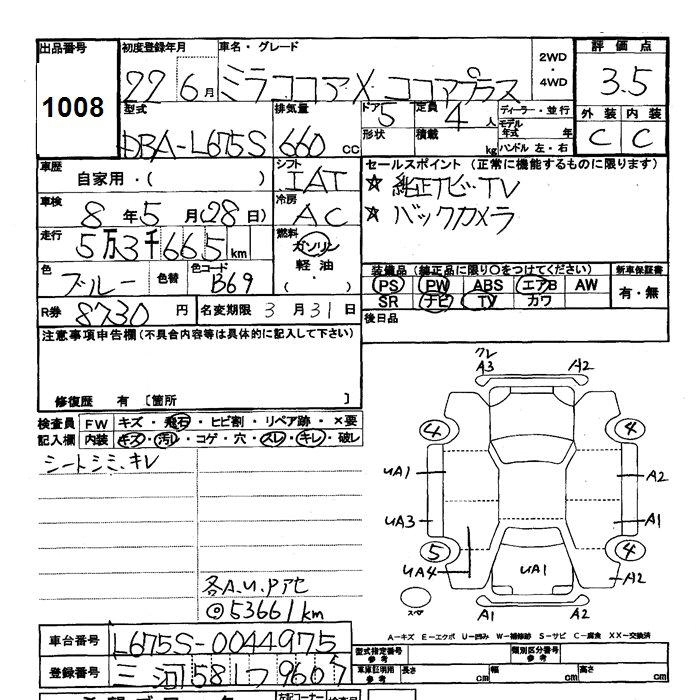 出品番号 初度登録年月 車名・グレード 2WD・4WD 評価点
1008 22 6月 ミラココア X ココアプラス 3.5
型式 排気量 ドア 定員 ディーラー・並行 外装 内装
DBA-L675S 660cc 5 4人 モデル年式 年 C C
形状 積載 kg ハンドル 左・右
車歴 自家用・( ) シフト IAT セールスポイント (正常に機能するものに限ります)
☆ 純正ナビ・TV
車検 8年5月(28日) 冷房 AC
☆ バックカメラ
走行 5万3千665km 燃料 ガソリン 軽油 ( ・ )
色 ブルー 色替 色コード B69
装備品 (純正品に限り○をつけてください) 新車保証書
PS PW ABS エアB AW 有・無
SR ナビ TV カワ
R券 8730円 名変期限 3月31日 後日品
注意事項申告欄 (不具合内容等は具体的に記入して下さい)
修復歴 有 [箇所 ]
検査員記入欄 FW キズ・飛石・ヒビ割・リペア跡・×要
内装 キズ・汚レ・コゲ・穴・スレ・キレ・破レ
シートシミ、キレ
クレ
A3 A2
4 4
UA1 A2
UA3 A1
5 4
UA4 UA1 A2
スペア
A1 A2
各A.U.Pアセ
◎53661km
A-キズ E-エクボ U-凹み W-補修跡 S-サビ C-腐食 XX-交換済
車台番号 L675S-0044975
型式指定番号 参考 類別区分番号 参考
登録番号 三河 581 つ 9607
車庫証明用 参考 長さ cm 幅 cm 高さ cm